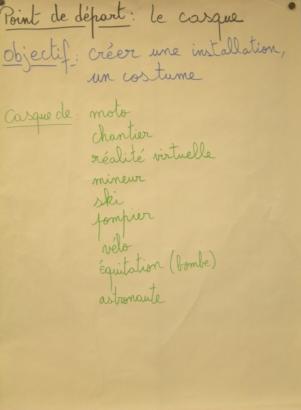 Point de départ : le casque
Objectif : créer une installation,
un costume
Casque de : moto
chantier
réalité virtuelle
mineur
ski
pompier
vélo
équitation (bombe)
astronaute